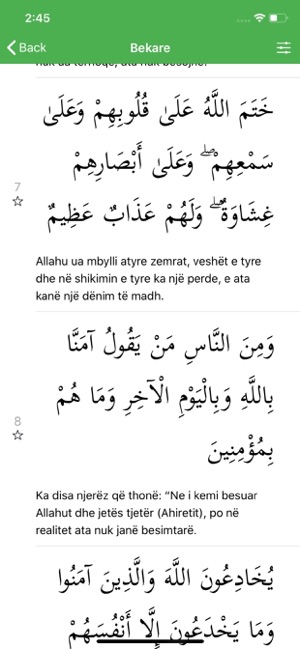 2:45
Back
Bekare
خَتَمَ اللَّهُ عَلَىٰ قُلُوبِهِمْ وَعَلَىٰ
سَمْعِهِمْ ۖ وَعَلَىٰ أَبْصَارِهِمْ
7
غِشَاوَةٌ ۖ وَلَهُمْ عَذَابٌ عَظِيمٌ
Allahu ua mbylli atyre zemrat, veshët e tyre
dhe në shikimin e tyre ka një perde, e ata
kanë një dënim të madh.
وَمِنَ النَّاسِ مَنْ يَقُولُ آمَنَّا
بِاللَّهِ وَبِالْيَوْمِ الْآخِرِ وَمَا هُمْ
8
بِمُؤْمِنِينَ
Ka disa njerëz që thonë: “Ne i kemi besuar
Allahut dhe jetës tjetër (Ahiretit), po në
realitet ata nuk janë besimtarë.
يُخَادِعُونَ اللَّهَ وَالَّذِينَ آمَنُوا
وَمَا يَخْدَعُونَ إِلَّا أَنْفُسَهُمْ